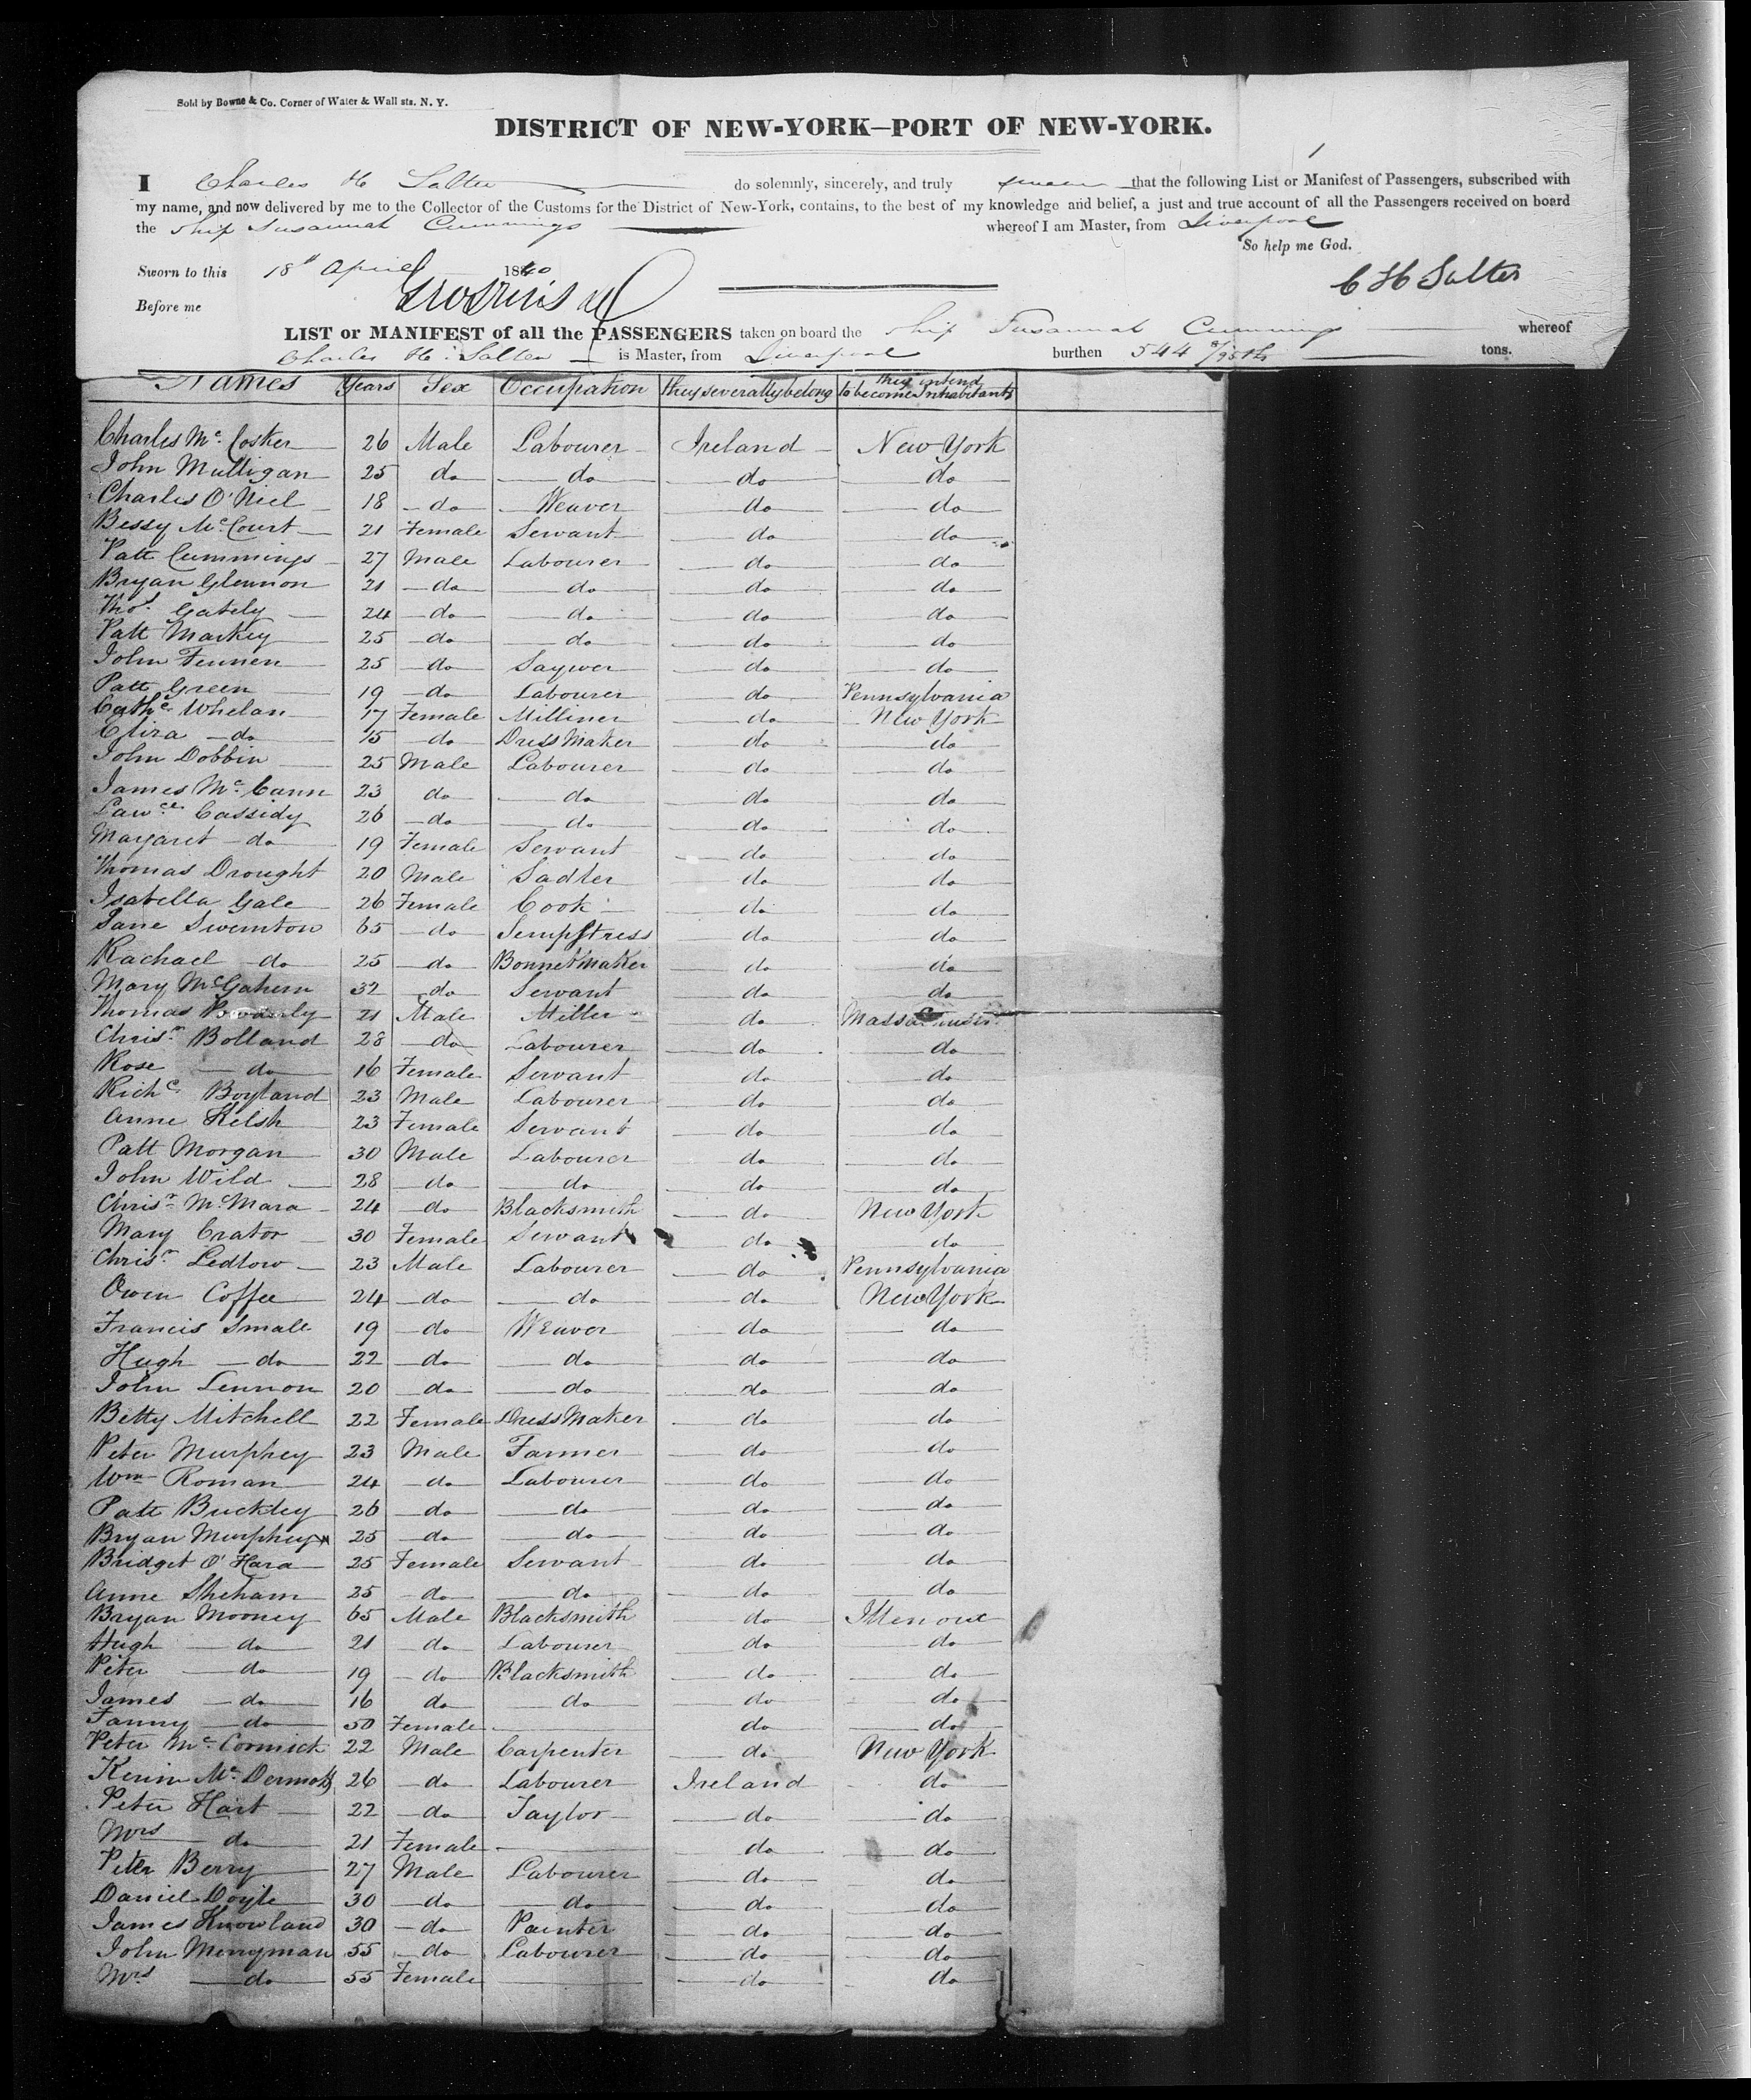 Sold by Bowne & Co. Corner of Water & Wall sts. N. Y.
DISTRICT OF NEW-YORK—PORT OF NEW-YORK.
I Charles H Salter do solemnly, sincerely, and truly swear that the following List or Manifest of Passengers, subscribed with
my name, and now delivered by me to the Collector of the Customs for the District of New-York, contains, to the best of my knowledge and belief, a just and true account of all the Passengers received on board
the Ship Susannah Cummings whereof I am Master, from Liverpool
So help me God.
Sworn to this 18th April 1840
C H Salter
Before me
LIST or MANIFEST of all the PASSENGERS taken on board the Ship Susannah Cummings whereof
Charles H. Salter is Master, from Liverpool burthen 544 8/95ths tons.
Names Years Sex Occupation they severally belong they intend to become Inhabitants
Charles Mc Cosker 26 Male Labourer Ireland New York
John Mulligan 25 do do do do
Charles O'Niel 18 do Weaver do do
Bessy McCourt 21 Female Servant do do
Patt Cummings 27 Male Labourer do do
Bryan Glennon 21 do do do do
Thos. Gately 24 do do do do
Patt Markey 25 do do do do
John Fennen 25 do Saywer do do
Patt Green 19 do Labourer do Pennsylvania
Cathe. Whelan 17 Female Milliner do New York
Eliza do 15 do Dress Maker do do
John Dobbin 25 Male Labourer do do
James Mc Cann 23 do do do do
Lawce. Cassidy 26 do do do do
Margaret do 19 Female Servant do do
Thomas Drought 20 Male Sadler do do
Isabella Gale 26 Female Cook do do
Jane Swinton 65 do Sempstress do do
Rachael do 25 do Bonnet Maker do do
Mary McGahern 32 do Servant do do
Thomas 21 Male Miller do
Chrisr. Bolland 28 do Labourer do do
Rose do 16 Female Servant do do
Richd. Boyland 23 Male Labourer do do
Anne Kelsh 23 Female Servant do do
Patt Morgan 30 Male Labourer do do
John Wild 28 do do do do
Chrisr. McMara 24 do Blacksmith do New York
Mary Crator 30 Female Servant do do
Chrisr. Ledlow 23 Male Labourer do Pennsylvania
Owen Coffee 24 do do do New York
Francis Small 19 do Weaver do do
Hugh do 22 do do do do
John Lennon 20 do do do do
Betty Mitchell 22 Female Dress Maker do do
Peter Murphey 23 Male Farmer do do
Wm Roman 24 do Labourer do do
Patt Buckley 26 do do do do
Bryan Murphey 25 do do do do
Bridget O'Hara 25 Female Servant do do
Anne Sheham 25 do do do do
Bryan Mooney 65 Male Blacksmith do
Hugh do 21 do Labourer do do
Peter do 19 do Blacksmith do do
James do 16 do do do do
Fanny do 50 Female do do
Peter Mc Cormick 22 Male Carpenter do New York
Kerin Mc Dermott 26 do Labourer Ireland do
Peter Hart 22 do Taylor do do
Mrs do 21 Female do do
Peter Berry 27 Male Labourer do do
Daniel Doyle 30 do do do do
James Knowland 30 do Painter do do
John Merryman 55 do Labourer do do
Mrs do 55 Female do do